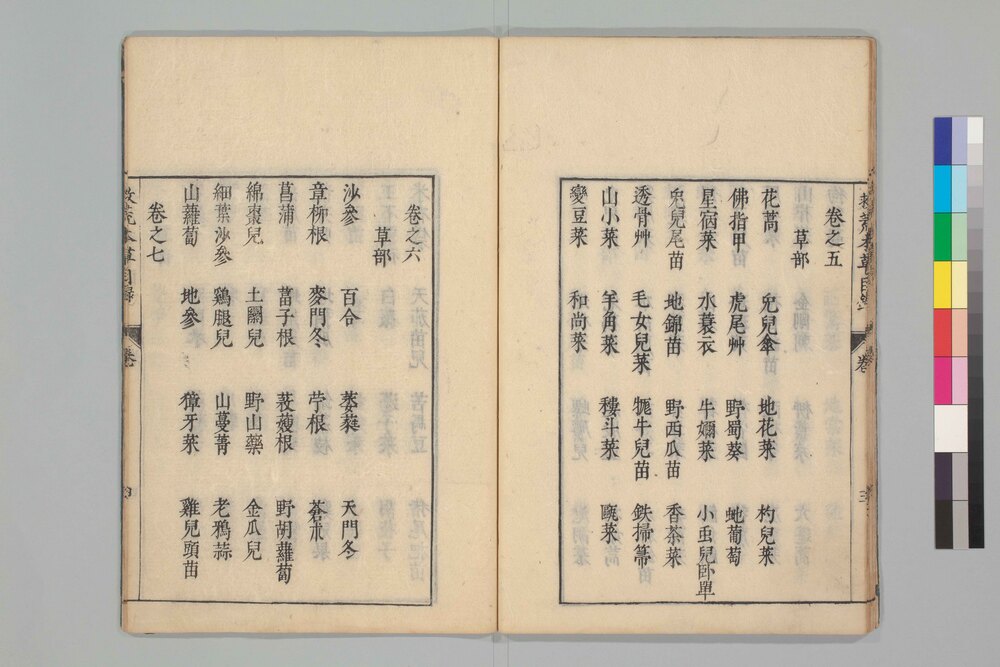 卷之五
草部
花蒿 兒兒傘 地花菜 杓兒菜
佛指甲 虎尾艸 野蜀葵 虵葡萄
星宿菜 水蓑衣 牛嬭菜 小虫兒卧單
兎兒尾苗 地錦苗 野西瓜苗 香茶菜
透骨艸 毛女兒菜 牻牛兒苗 鉄掃箒
山小菜 羊角菜 耬斗菜 甌菜
變豆菜 和尚菜
卷之六
草部
沙參 百合 萎蕤 天門冬
章柳根 麥門冬 苧根 蒼朮
菖蒲 葍子根 菽䕅根 野胡蘿蔔
綿棗兒 土圞兒 野山藥 金瓜兒
細葉沙參 鷄腿兒 山蔓菁 老鴉蒜
山蘿蔔 地參 獐牙菜 雞兒頭苗
卷之七
救荒本草目録 卷 四